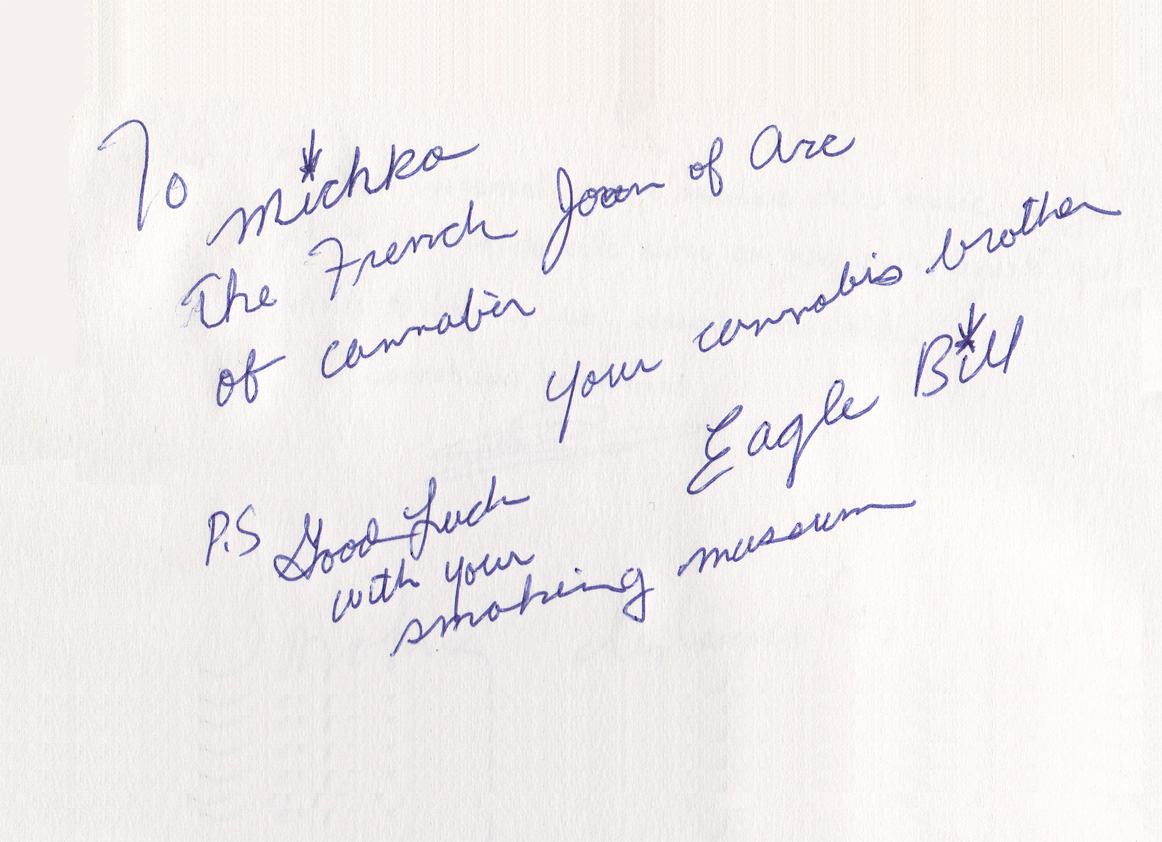 To Michka
The French Joan of Arc
of cannabis
your cannabis brother
Eagle Bill
P.S Good Luck
with your
smoking museum